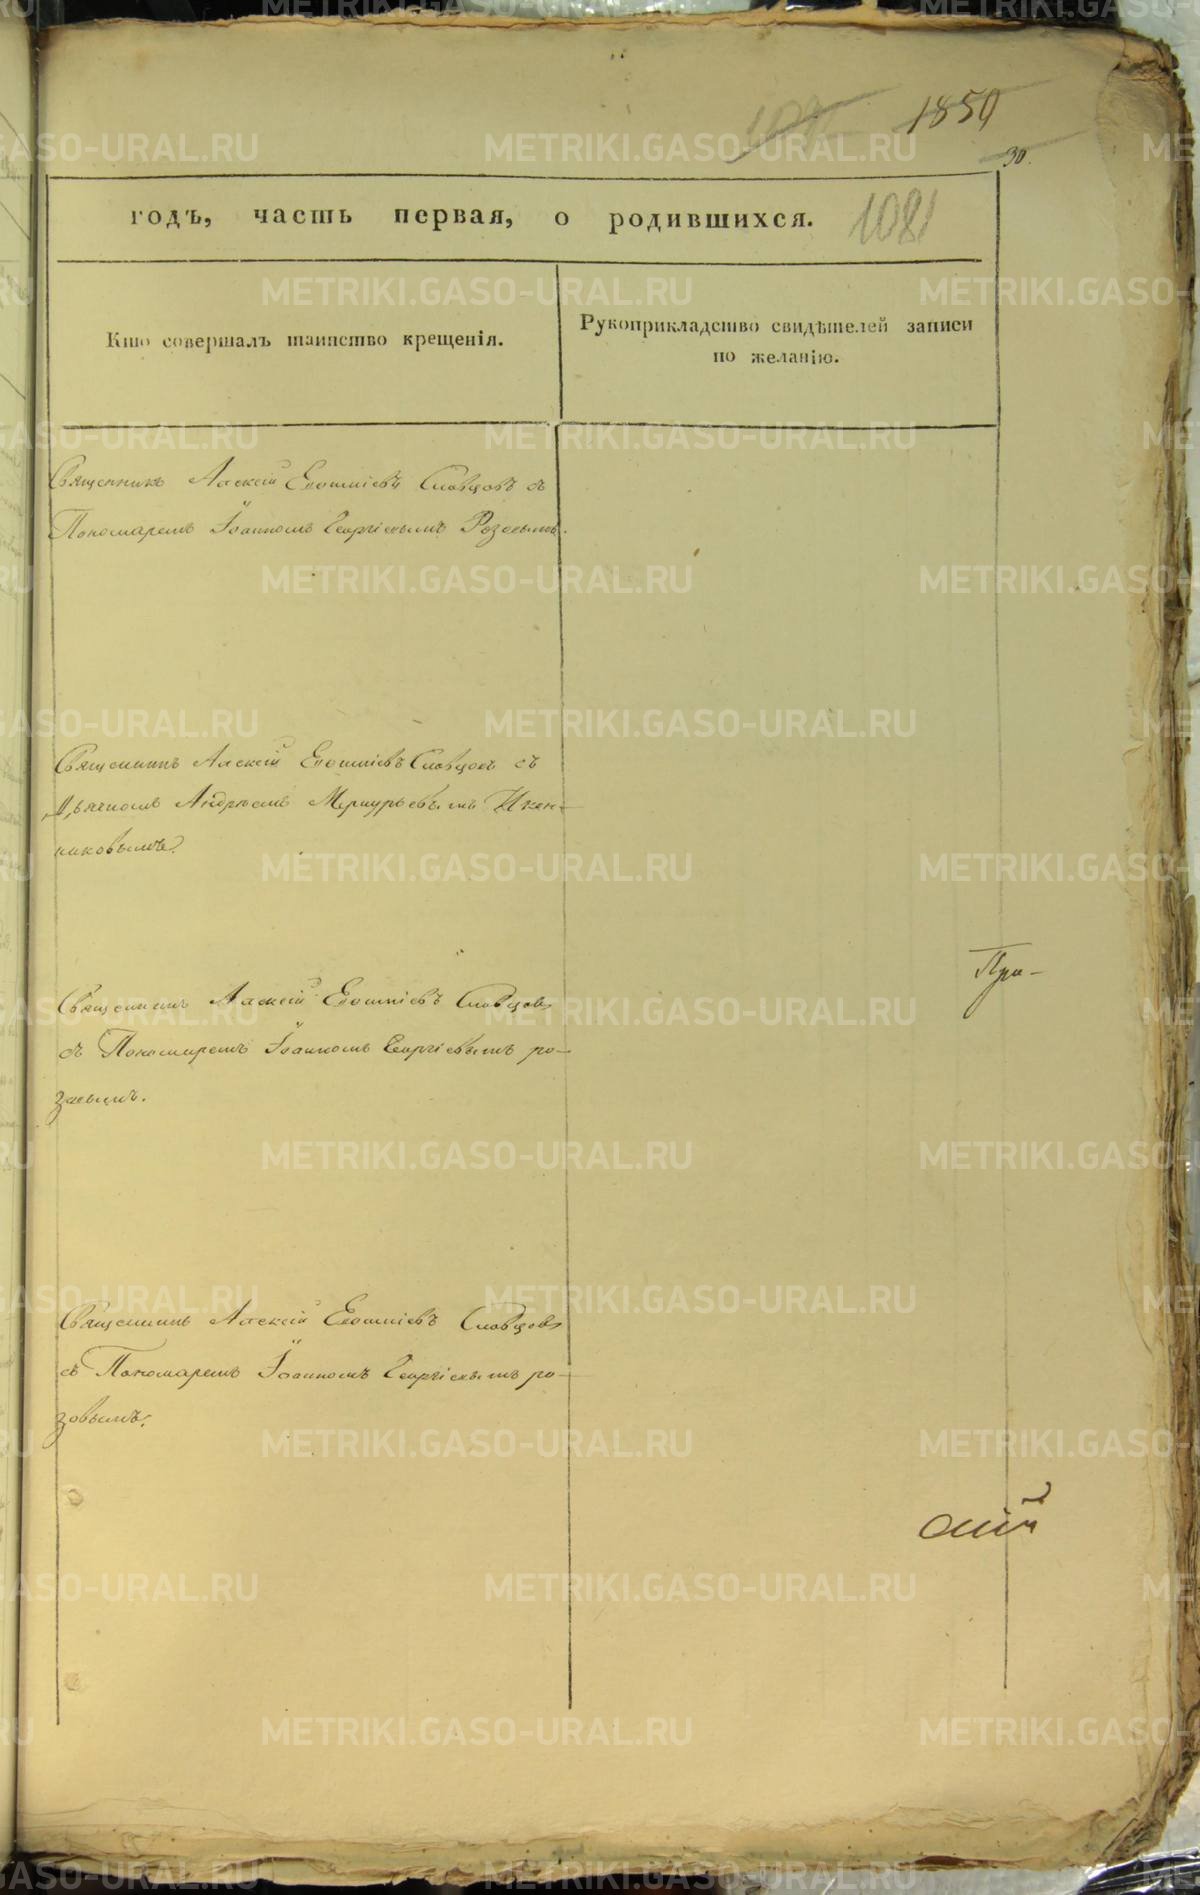 1850
30.
годъ, часть первая, о родившихся. 1081
Кто совершалъ таинство крещенія.
Рукоприкладство свидѣтелей записи
по желанію.
Священникъ Алексій Словцовъ съ
Пономаремъ Іоанномъ Георгіевымъ Розовымъ.
Священникъ Алексій Словцовъ съ
Дьячкомъ Андреемъ Меркурьевымъ Икон-
никовымъ.
Священникъ Алексій Словцовъ
съ Пономаремъ Іоанномъ Георгіевымъ ро-
зовымъ.
Священникъ Алексій Словцовъ
съ Пономаремъ Іоанномъ Георгіевымъ ро-
зовымъ.
METRIKI.GASO-URAL.RU